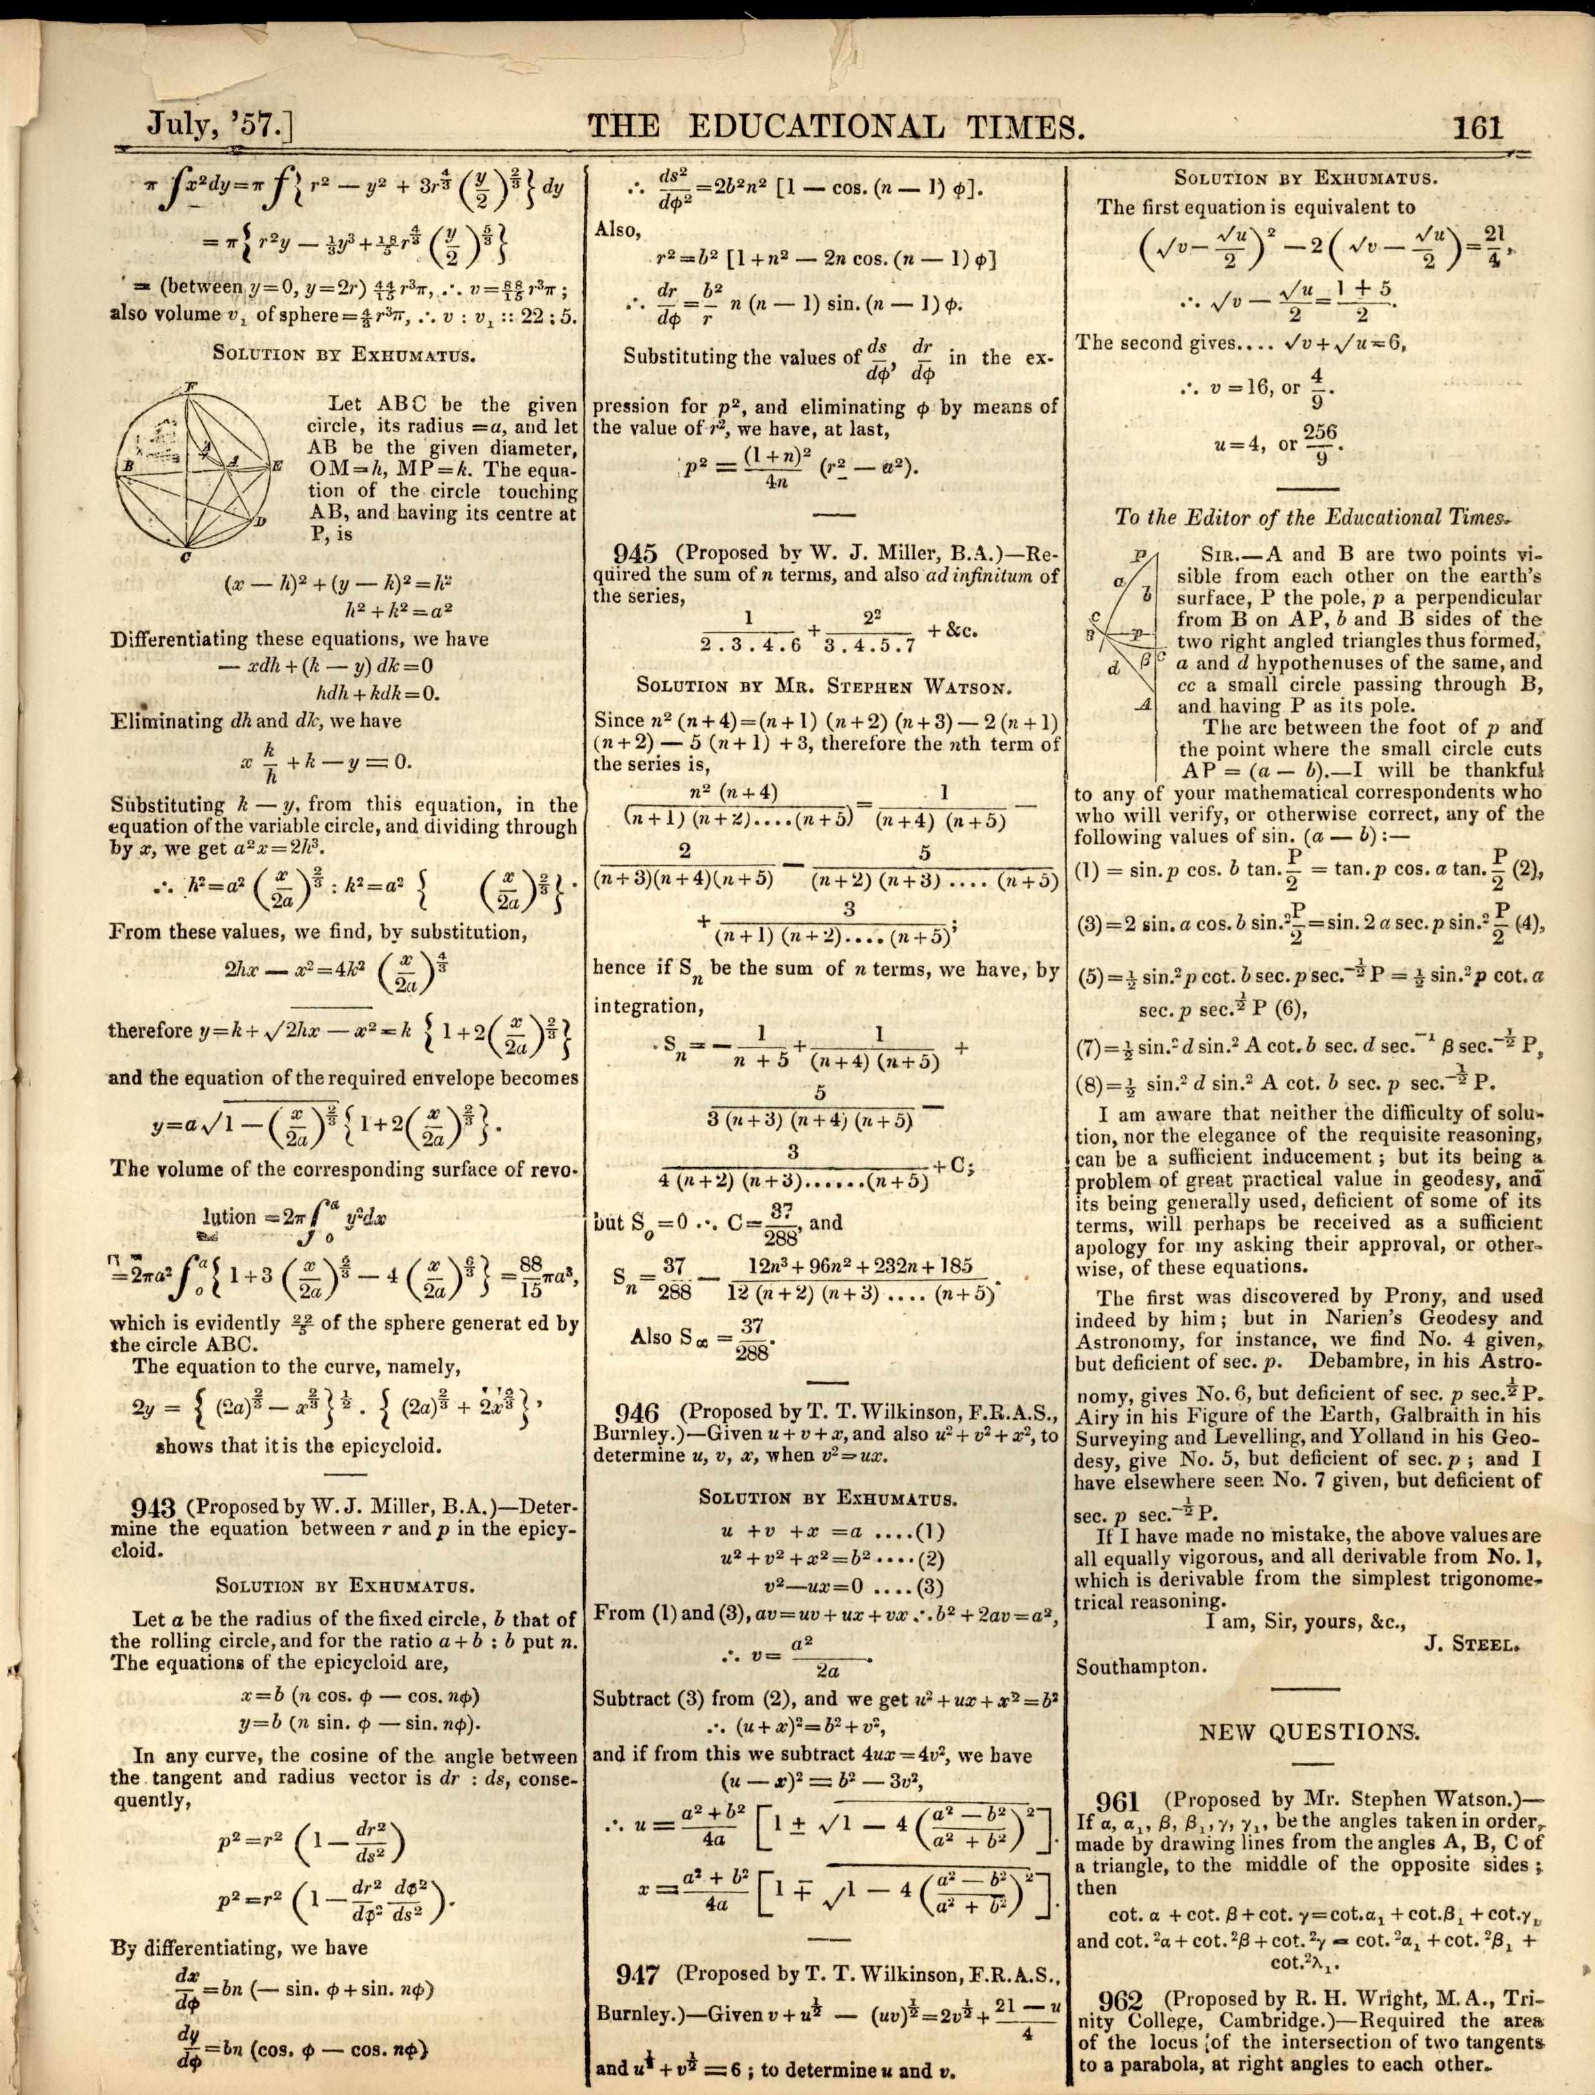 July, '57.] THE EDUCATIONAL TIMES. 161
π∫x²dy=π∫{r² — y² + 3r^(4/3) (y/2)^(2/3)} dy
= π{r²y — ⅓y³ + 18/5 r^(4/3) (y/2)^(5/3)}
= (between y=0, y=2r) 44/15 r³π, ∴ v=88/15 r³π;
also volume v₁ of sphere=4/3 r³π, ∴ v : v₁ :: 22 : 5.
SOLUTION BY EXHUMATUS.
F
B A E
D
C
Let ABC be the given
circle, its radius =a, and let
AB be the given diameter,
OM=h, MP=k. The equa-
tion of the circle touching
AB, and having its centre at
P, is
(x — h)² + (y — k)² = k²
h² + k² = a²
Differentiating these equations, we have
— xdh + (k — y) dk=0
hdh + kdk=0.
Eliminating dh and dk, we have
x k/h + k — y = 0.
Substituting k — y, from this equation, in the
equation of the variable circle, and dividing through
by x, we get a²x=2h³.
∴ h²=a² (x/2a)^(2/3) : k²=a² { (x/2a)^(2/3)}.
From these values, we find, by substitution,
2hx — x²=4k² (x/2a)^(4/3)
therefore y=k+√2hx — x²=k {1+2(x/2a)^(2/3)}
and the equation of the required envelope becomes
y=a√1—(x/2a)^(2/3) {1+2(x/2a)^(2/3)}.
The volume of the corresponding surface of revo-
lution =2π∫₀ᵃ y²dx
=2πa²∫₀ᵃ{1+3 (x/2a)^(2/3) — 4 (x/2a)^(6/3)} = 88/15 πa³,
which is evidently 22/5 of the sphere generat ed by
the circle ABC.
The equation to the curve, namely,
2y = {(2a)^(2/3) — x^(2/3)}^½ . {(2a)^(2/3) + 2x^(2/3)},
shows that it is the epicycloid.
943 (Proposed by W. J. Miller, B.A.)—Deter-
mine the equation between r and p in the epicy-
cloid.
SOLUTION BY EXHUMATUS.
Let a be the radius of the fixed circle, b that of
the rolling circle, and for the ratio a+b : b put n.
The equations of the epicycloid are,
x=b (n cos. φ — cos. nφ)
y=b (n sin. φ — sin. nφ).
In any curve, the cosine of the angle between
the tangent and radius vector is dr : ds, conse-
quently,
p²=r² (1—dr²/ds²)
p²=r² (1—dr²/dφ² dφ²/ds²).
By differentiating, we have
dx/dφ=bn (— sin. φ + sin. nφ)
dy/dφ=bn (cos. φ — cos. nφ)
∴ ds²/dφ²=2b²n² [1 — cos. (n — 1) φ].
Also,
r²=b² [1+n² — 2n cos. (n — 1) φ]
∴ dr/dφ=b²/r n (n — 1) sin. (n — 1) φ.
Substituting the values of ds/dφ, dr/dφ in the ex-
pression for p², and eliminating φ by means of
the value of r², we have, at last,
p² = (1+n)²/4n (r² — a²).
945 (Proposed by W. J. Miller, B.A.)—Re-
quired the sum of n terms, and also ad infinitum of
the series,
1/2.3.4.6 + 2²/3.4.5.7 + &c.
SOLUTION BY MR. STEPHEN WATSON.
Since n² (n+4)=(n+1) (n+2) (n+3) — 2 (n+1)
(n+2) — 5 (n+1) +3, therefore the nth term of
the series is,
n² (n+4)/(n+1) (n+2)....(n+5) = 1/(n+4) (n+5) —
2/(n+3)(n+4)(n+5) — 5/(n+2) (n+3) .... (n+5)
+ 3/(n+1) (n+2)....(n+5);
hence if Sₙ be the sum of n terms, we have, by
integration,
Sₙ = — 1/n + 5 + 1/(n+4) (n+5) +
5/3 (n+3) (n+4) (n+5) —
3/4 (n+2) (n+3)......(n+5) + C;
but S₀=0 ∴ C=37/288, and
Sₙ=37/288 — 12n³ + 96n² + 232n + 185/12 (n+2) (n+3) .... (n+5).
Also S∞ = 37/288.
946 (Proposed by T. T. Wilkinson, F.R.A.S.,
Burnley.)—Given u+v+x, and also u²+v²+x², to
determine u, v, x, when v²=ux.
SOLUTION BY EXHUMATUS.
u +v +x =a ....(1)
u²+v²+x²=b² ....(2)
v²—ux=0 ....(3)
From (1) and (3), av=uv+ux+vx ∴ b²+2av=a²,
∴ v= a²/2a .
Subtract (3) from (2), and we get u²+ux+x²=b²
∴ (u+x)²=b²+v²,
and if from this we subtract 4ux=4v², we have
(u — x)² = b² — 3v²,
∴ u = a² + b²/4a [1 ± √1 — 4 (a² — b²/a² + b²)²].
x = a² + b²/4a [1 ∓ √1 — 4 (a² — b²/a² + b²)²].
947 (Proposed by T. T. Wilkinson, F.R.A.S.,
Burnley.)—Given v+u^½ — (uv)^½=2v^½ + 21 — u/4
and u^½ + v^½ =6; to determine u and v.
SOLUTION BY EXHUMATUS.
The first equation is equivalent to
(√v—√u/2)² —2(√v—√u/2)=21/4,
∴ √v—√u/2=1+5/2.
The second gives.... √v+√u=6,
∴ v=16, or 4/9.
u=4, or 256/9.
To the Editor of the Educational Times.
P
a b
C
B p
β c
d
A
SIR.—A and B are two points vi-
sible from each other on the earth's
surface, P the pole, p a perpendicular
from B on AP, b and B sides of the
two right angled triangles thus formed,
a and d hypothenuses of the same, and
cc a small circle passing through B,
and having P as its pole.
The arc between the foot of p and
the point where the small circle cuts
AP = (a — b).—I will be thankful
to any of your mathematical correspondents who
who will verify, or otherwise correct, any of the
following values of sin. (a — b) :—
(1) = sin. p cos. b tan. P/2 = tan. p cos. a tan. P/2 (2),
(3)=2 sin. a cos. b sin.² P/2=sin. 2 a sec. p sin.² P/2 (4),
(5)=½ sin.² p cot. b sec. p sec.^-½ P = ½ sin.² p cot. a
sec. p sec.^½ P (6),
(7)=½ sin.² d sin.² A cot. b sec. d sec.⁻¹ β sec.^-½ P,
(8)=½ sin.² d sin.² A cot. b sec. p sec.^-½ P.
I am aware that neither the difficulty of solu-
tion, nor the elegance of the requisite reasoning,
can be a sufficient inducement; but its being a
problem of great practical value in geodesy, and
its being generally used, deficient of some of its
terms, will perhaps be received as a sufficient
apology for my asking their approval, or other-
wise, of these equations.
The first was discovered by Prony, and used
indeed by him; but in Narien's Geodesy and
Astronomy, for instance, we find No. 4 given,
but deficient of sec. p. Debambre, in his Astro-
nomy, gives No. 6, but deficient of sec. p sec.^½ P.
Airy in his Figure of the Earth, Galbraith in his
Surveying and Levelling, and Yolland in his Geo-
desy, give No. 5, but deficient of sec. p; and I
have elsewhere seen No. 7 given, but deficient of
sec. p sec.^-½ P.
If I have made no mistake, the above values are
all equally vigorous, and all derivable from No. 1,
which is derivable from the simplest trigonome-
trical reasoning.
I am, Sir, yours, &c.,
J. STEEL.
Southampton.
NEW QUESTIONS.
961 (Proposed by Mr. Stephen Watson.)—
If α, α₁, β, β₁, γ, γ₁, be the angles taken in order,
made by drawing lines from the angles A, B, C of
a triangle, to the middle of the opposite sides;
then
cot. α + cot. β + cot. γ=cot.α₁ + cot.β₁ + cot.γ₁,
and cot. ²α + cot. ²β + cot. ²γ = cot. ²α₁ + cot. ²β₁ +
cot.²λ₁.
962 (Proposed by R. H. Wright, M.A., Tri-
nity College, Cambridge.)—Required the area
of the locus of the intersection of two tangents
to a parabola, at right angles to each other.